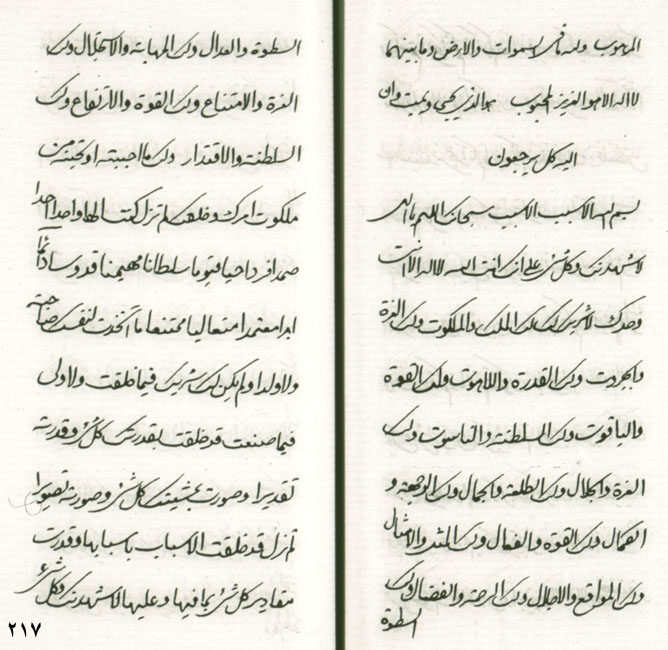 المرهوب وله ما في السموات والارض وما بينهما
لا اله الا هو العزيز المحبوب هو الذي يحيي ويميت وان
اليه كل يرجعون
بسم الله الاسبب الاسبب سبحانك اللهم يا الهي
لاشهدنك وكل شئ على انك انت الله لا اله الا انت
وحدك لا شريك لك لك الملك والملكوت ولك العزة
والجبروت ولك القدرة واللاهوت ولك القوة
والياقوت ولك السلطنة والناسوت ولك
العزة والجلال ولك الطلعة والجمال ولك الوجهة و
الكمال ولك القوة والفعال ولك المثل والامثال
ولك المواقع والاجلال ولك الرحمة والفضال ولك
السطوة
السطوة والعدال ولك المهابة والاستقلال ولك
العزة والامتناع ولك القوة والارتفاع ولك
السلطنة والاقتدار ولك ما احببته او تحبنه من
ملكوت امرك وخلقك لم تزل كنت الها واحدا احدا
صمدا فردا حيا قيوما سلطانا مهيمنا قدوسا دائما
ابدا معتمدا متعاليا ممتنعا ما اتخذت لنفسك صاحبة
ولا ولدا ولم يكن لك شريك فيما خلقت ولا ولي
فيما صنعت قد خلقت بقدرتك كل شئ وقدرته
تقديرا وصورت بمشيتك كل شئ وصورته تصويرا
لم تزل قد خلقت الاسباب باسبابها وقدرت
مقادير كل شئ بما فيها وعليها لاشهدنك وكل شئ
٢١٧